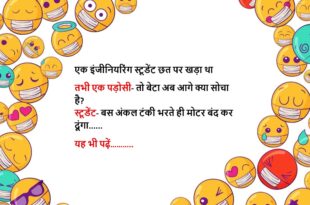 एक इंजीनियरिंग स्टूडेंट छत पर खड़ा था
तभी एक पड़ोसी- तो बेटा अब आगे क्या सोचा
है?
स्टूडेंट- बस अंकल टंकी भरते ही मोटर बंद कर
दूंगा......
यह भी पढ़ें...........